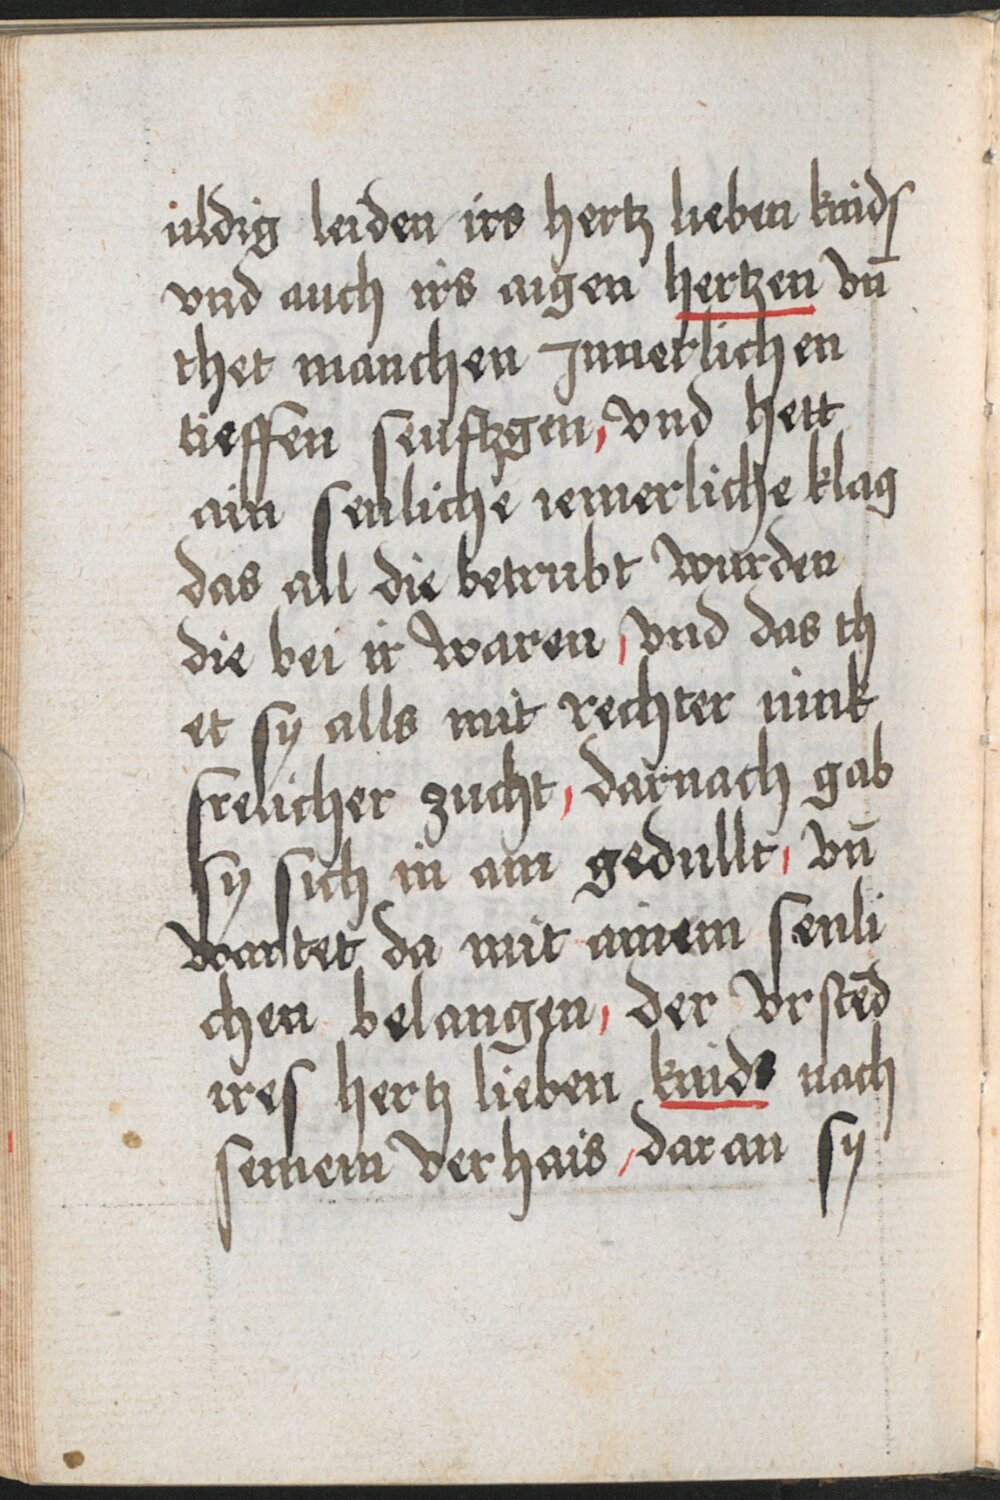 uldig leiden irs hertz lieben kinds
vnd auch irs aigen hertzen vn̄
thet manchen Innerlichen
tieffen seufftzgen, vnd hett
ain senliche iemerliche klag
das all die betrubt wurden
die bei ir waren, vnd das th
et sy alls mit rechter iunk
frelicher zucht, darnach gab
sy sich in ain gedullt, vn̄
wartet da mit ainem senli
chen belangen, der vrstēd
ires hertz lieben kinds nach
seinem verhais, daran sy